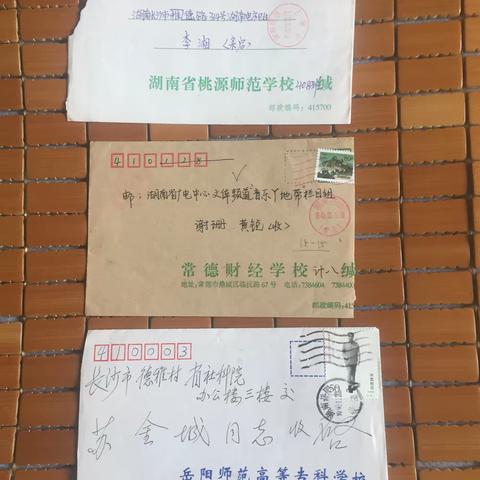 李湘〈亲启〉
湖南省桃源师范学校 缄
邮政编码：415700
410128
邮：湖南省广电中心文体频道"音乐丫地带"栏目组
谢珊 黄锐〈收〉
常德财经学校 计八 缄
地址：常德市鼎城区临沅路67号 电话：7384604
邮政编码:41
410003
长沙市德雅村省社科院
办公楼三楼交
苏金城同志收启
岳阳师范高等专科学校